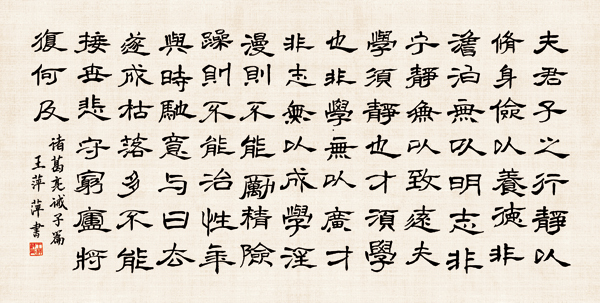 夫君子之行靜以
脩身儉以養德非
澹泊無以明志非
宁靜無以致遠夫
學須靜也才須學
也非學無以廣才
非志無以成學淫
漫則不能勵精險
躁則不能治性年
與時馳意与日去
遂成枯落多不能
接世悲守窮廬將
復何及
诸葛亮诫子篇
王萍萍書